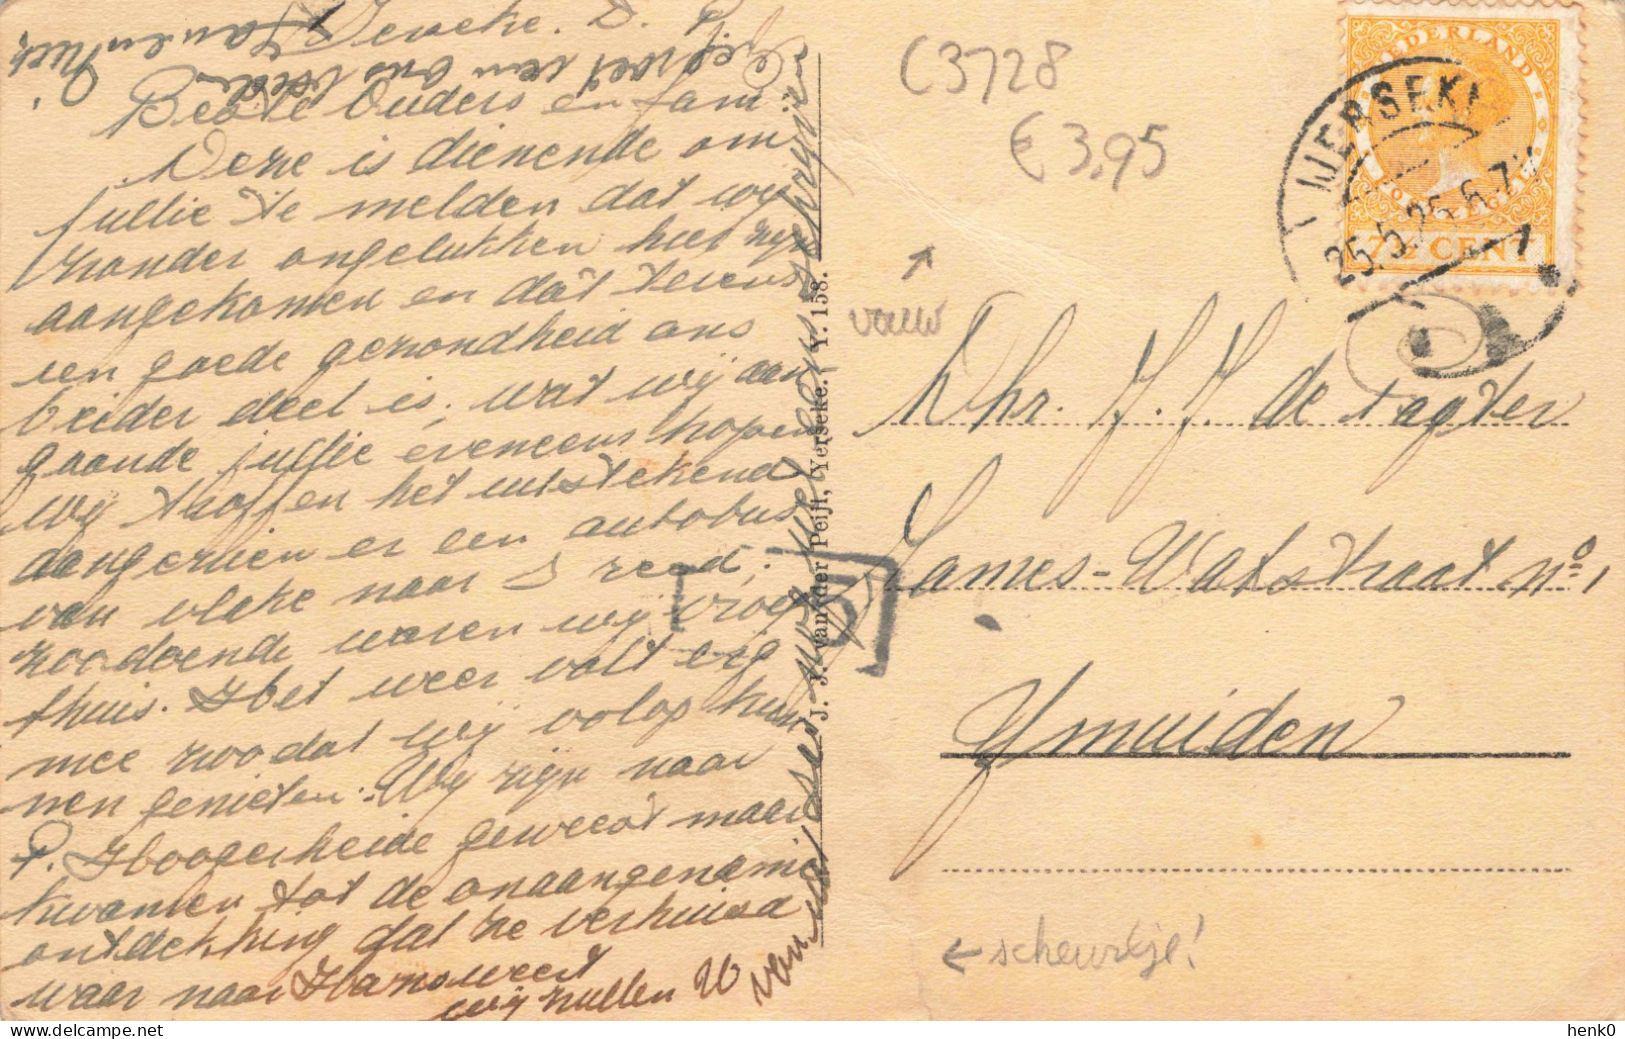 Yerseke.
Beste Ouders en fam
Deze is dienende om
jullie te melden dat wy
zonder ongelukken hier zyn
aangekomen en dat tevens
een goede gezondheid ons
beider deel is, wat wij aan
gaande jullie eveneens hopen
wy troffen het uitstekend
aangezien er een autobus
van vlake naar I reed,
zoodoende waren wij vroeg
thuis. Het weer valt erg
mee zoodat wij volop kun
nen genieten. Wy zijn naar
P. Hoogerheide geweest maar
kwamen tot de onaangename
ontdekking dat ze verhuisd
waar naar Hansweert
wij zullen zo
van
Gegroet van ons beiden
J. J. van der Peijl, Yerseke. Y. 158.
C3728
€ 3,95
vouw
NEDERLAND
7½ CENT
IJERSEKE
25.5.25.6-7
Dhr. J. J. de Tagter
James-Watstraat no 1
Ymuiden
← scheurtje!
henk0